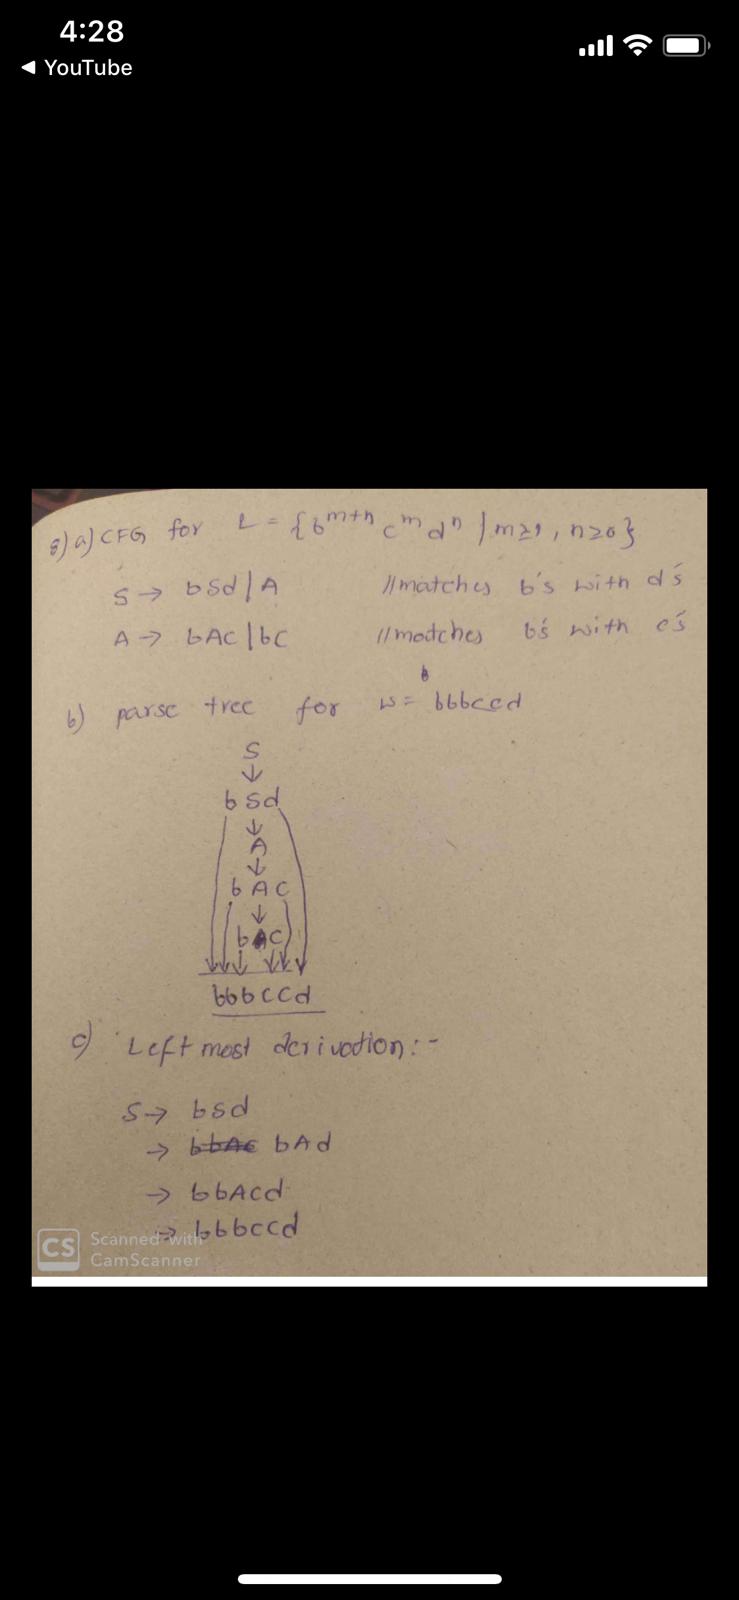 4:28
◀ YouTube
8) a) CFG for L = {b^{m+n} c^m d^n | m≥1, n≥0}
S → bSd | A //matches b's with d's
A → bAc | bC //matches b's with c's
b) parse tree for w = bbbccd
S
b S d
A
b A C
b C
bbbccd
c) Left most derivation:-
S → bSd
→ bAd
→ bbAcd
→ bbbccd
CS Scanned with
CamScanner